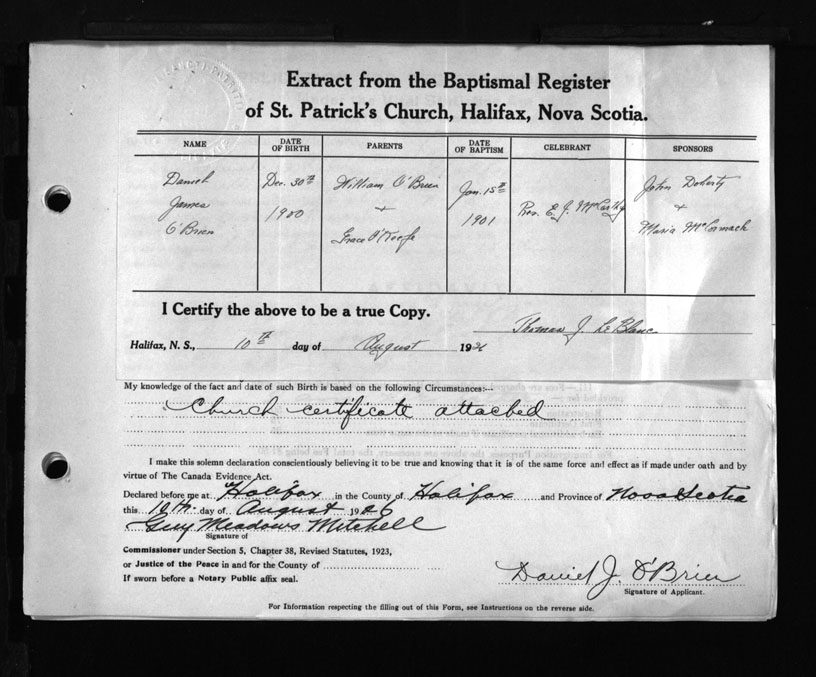 Extract from the Baptismal Register
of St. Patrick's Church, Halifax, Nova Scotia.
NAME DATE OF BIRTH PARENTS DATE OF BAPTISM CELEBRANT SPONSORS
Daniel Dec. 30th William O'Brien Jan. 15th Rev. E. J. McCarthy John Doherty
James 1900 + 1901 +
O'Brien Grace O'Keefe Maria McCormack
I Certify the above to be a true Copy.
Thomas J. LeBlanc
Halifax, N. S., 10th day of August 1926
My knowledge of the fact and date of such Birth is based on the following Circumstances:—
Church certificate attached
I make this solemn declaration conscientiously believing it to be true and knowing that it is of the same force and effect as if made under oath and by
virtue of The Canada Evidence Act.
Declared before me at Halifax in the County of Halifax and Province of Nova Scotia
this day of August 1926
Guy Meadows Mitchell
Signature of
Commissioner under Section 5, Chapter 38, Revised Statutes, 1923,
or Justice of the Peace in and for the County of
If sworn before a Notary Public affix seal.
Daniel J. O'Brien
Signature of Applicant.
For Information respecting the filling out of this Form, see Instructions on the reverse side.